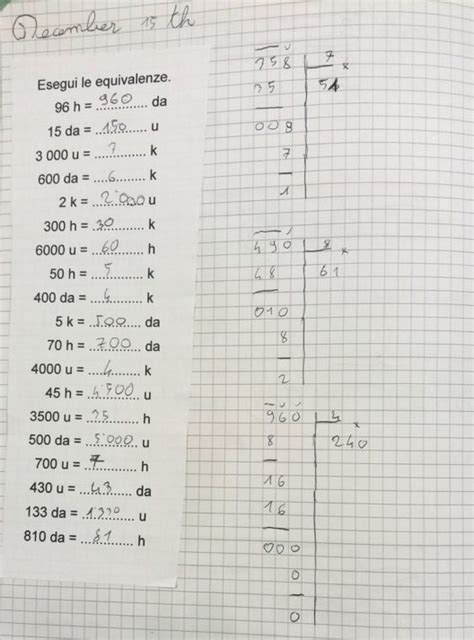 December 15 th
Esegui le equivalenze.
96 h = 960 da
15 da = 150 u
3 000 u = 3 k
600 da = 6 k
2 k = 2'000 u
300 h = 30 k
6000 u = 60 h
50 h = 5 k
400 da = 4 k
5 k = 500 da
70 h = 700 da
4000 u = 4 k
45 h = 4'500 u
3500 u = 35 h
500 da = 5'000 u
700 u = 7 h
430 u = 43 da
133 da = 1'330 u
810 da = 81 h
358 7 x
35 51
008
7
1
490 8 x
48 61
010
8
2
960 4 x
8 240
16
16
000
0
0